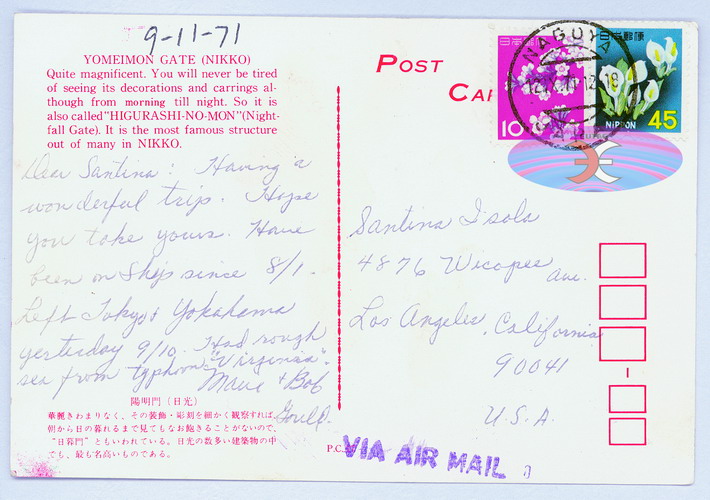 9-11-71
YOMEIMON GATE (NIKKO)
Quite magnificent. You will never be tired
of seeing its decorations and carrings al-
though from morning till night. So it is
also called "HIGURASHI-NO-MON" (Night-
fall Gate). It is the most famous structure
out of many in NIKKO.
Dear Santina: Having a
wonderful trip. Hope
you take yours. Have
been on Ship since 8/1.
Left Tokyo & Yokahama
yesterday 9/10. Had rough
sea from typhoon "Virginia".
Marie & Bob
Gould.
陽明門〔日光〕
華麗きわまりなく、その装飾・彫刻を細かく観察すれば、
朝から日の暮れるまで見てもなお飽きることがないので、
"日暮門"ともいわれている。日光の数多い建築物の中
でも、最も名高いものである。
POST
CAR
日本郵便
10
日本郵便
NIPPON 45
NAGOYA
12.IX.71.12-18
Santina Isola
4876 Wicopee Ave.
Los Angeles, California
90041
U.S.A.
P.C.
VIA AIR MAIL